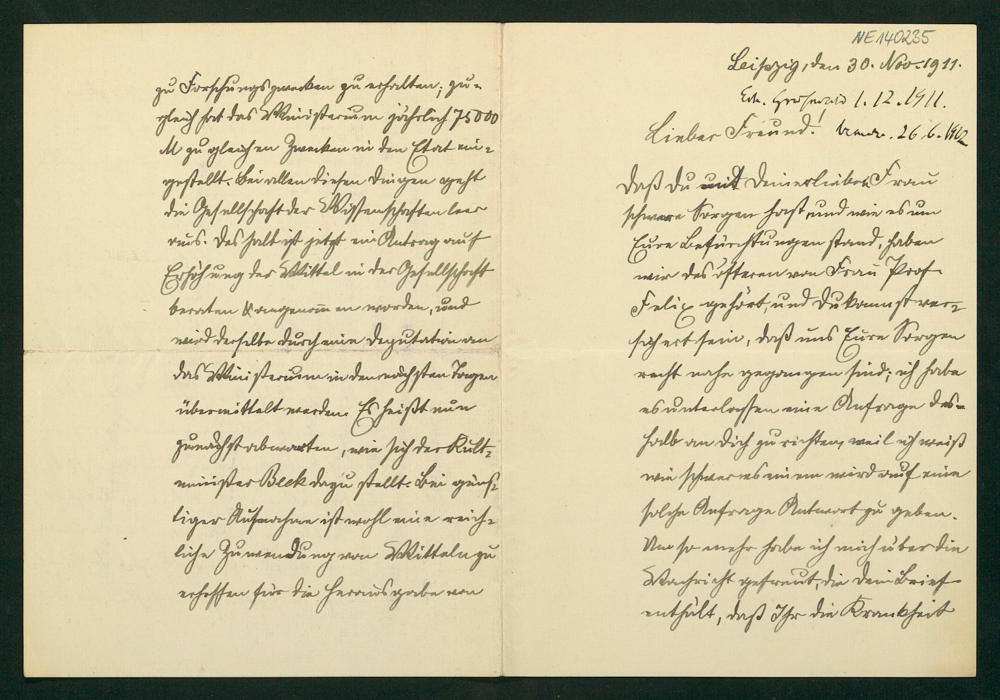 NE 140235
Leipzig, den 30. Nov. 1911.
Erh. Greifswald 1.12.1911.
Lieber Freund! beantw. 26.6.1912
daß Du mit Deiner lieben Frau
schwere Sorgen hast, und wie es um
Eure Befürchtungen stand, haben
wir des öfteren von Frau Prof.
Felix gehört, und Du kannst ver-
sichert sein, daß uns Eure Sorgen
recht nahe gegangen sind; ich habe
es unterlassen eine Anfrage des-
halb an Dich zu richten, weil ich weiß
wie schwer es einem wird auf eine
solche Anfrage Antwort zu geben.
Um so mehr habe ich mich über die
Nachricht gefreut, die dein Brief
enthält, daß Ihr die Krankheit
zu Forschungszwecken zu erhalten; zu-
gleich hat das Ministerium jährlich 75000
M zu gleichen Zwecken in den Etat ein-
gestellt. Bei allen diesen Dingen geht
die Gesellschaft der Wissenschaften leer
aus. Deshalb ist jetzt ein Antrag auf
Erhöhung der Mittel in der Gesellschaft
beraten & angenommen worden, und
wird derselbe durch eine Deputation an
das Ministerium in den nächsten Tagen
übermittelt werden. Es heißt nun
zunächst abwarten, wie sich der Kult-
minister Beck dazu stellt. Bei güns-
tiger Aufnahme ist wohl eine reich-
liche Zuwendung von Mitteln zu
erhoffen für die Herausgabe von